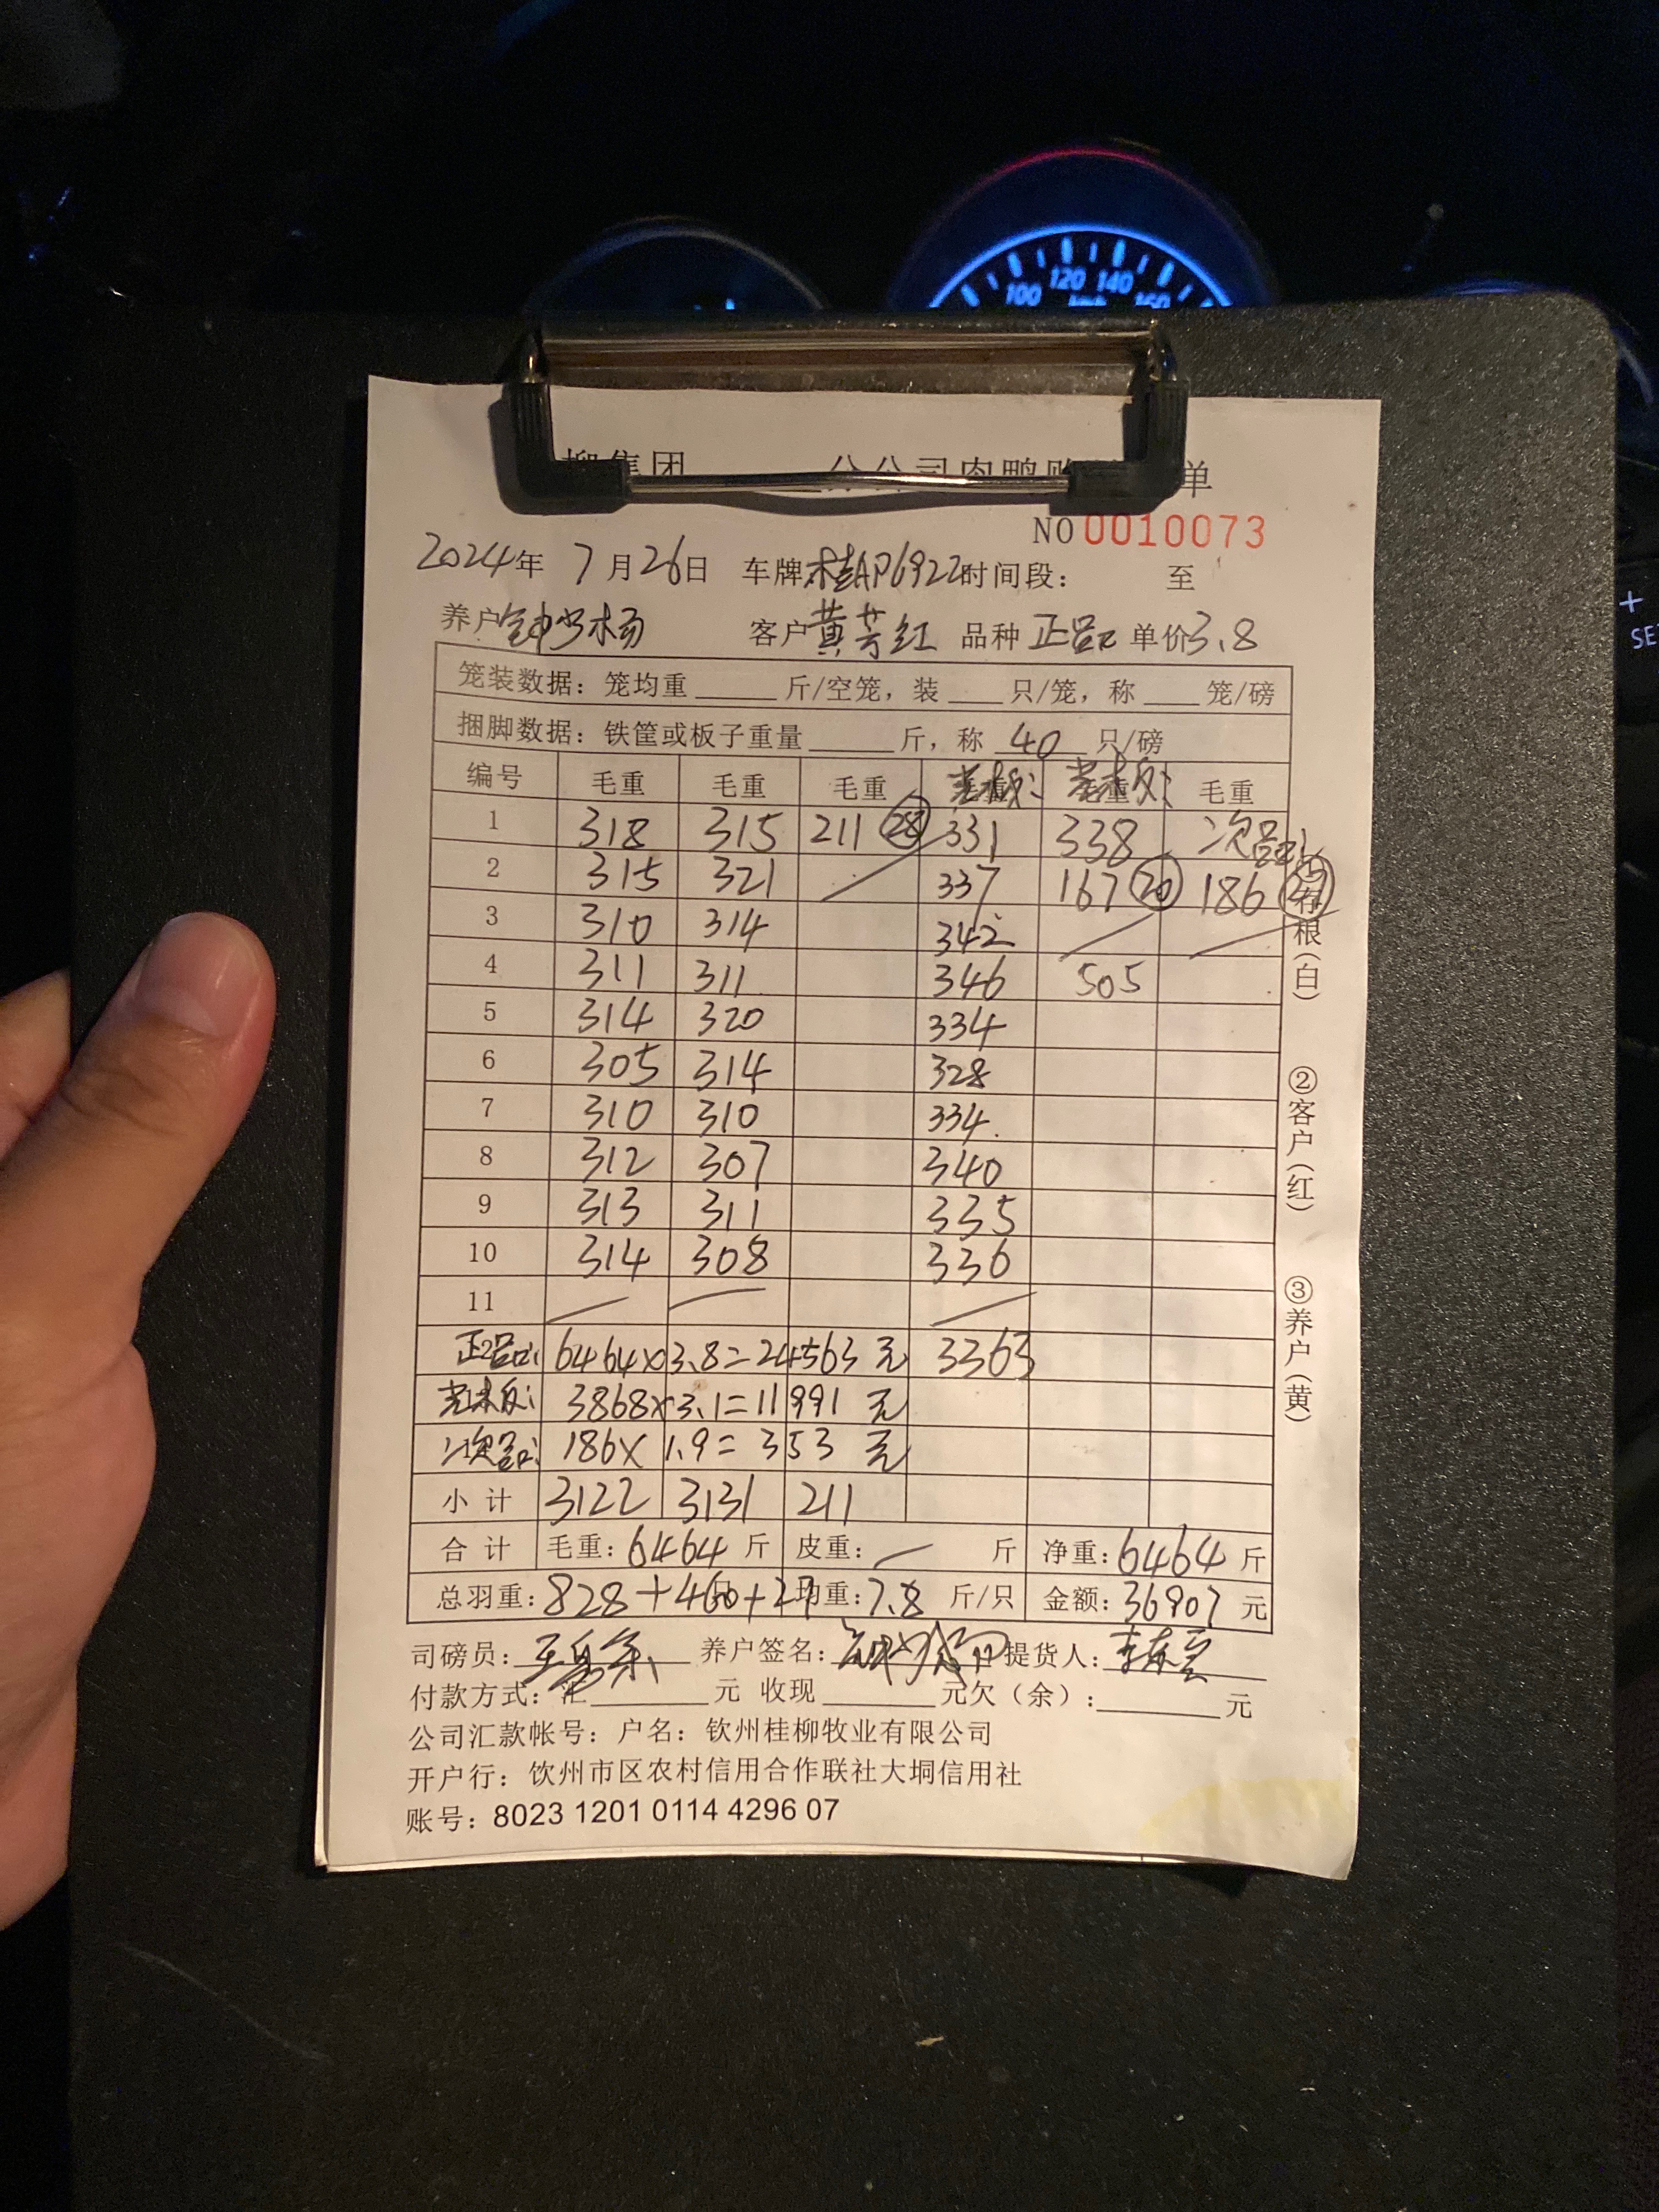 100 120 140 160
km/h
+
SE
柳集团 分公司肉鸭 单
NO 0010073
2024年 7月26日 车牌:桂AP6922 时间段: 至
养户 客户 黄芳红 品种 正品 单价3.8
笼装数据: 笼均重 斤/空笼, 装 只/笼, 称 笼/磅
捆脚数据: 铁筐或板子重量 斤, 称 40 只/磅
编号 毛重 毛重 毛重 毛重 毛重 毛重
1 318 315 211 28 331 338 次品:
2 315 321 337 167 20 186 27
3 310 314 342
4 311 311 346 505
5 314 320 334
6 305 314 328
7 310 310 334
8 312 307 340
9 313 311 335
10 314 308 336
11
正品: 6464×3.8=24563 元 3363
3868×3.1=11991 元
次品: 186×1.9=353 元
小计 3122 3131 211
合计 毛重: 6464 斤 皮重: 斤 净重: 6464 斤
总羽重: 828+460+27 均重: 7.8 斤/只 金额: 36907 元
司磅员: 养户签名: 提货人:
付款方式: 汇 元 收现 元欠(余): 元
公司汇款帐号: 户名: 钦州桂柳牧业有限公司
开户行: 钦州市区农村信用合作联社大垌信用社
账号: 8023 1201 0114 4296 07
存根(白)
②客户(红)
③养户(黄)